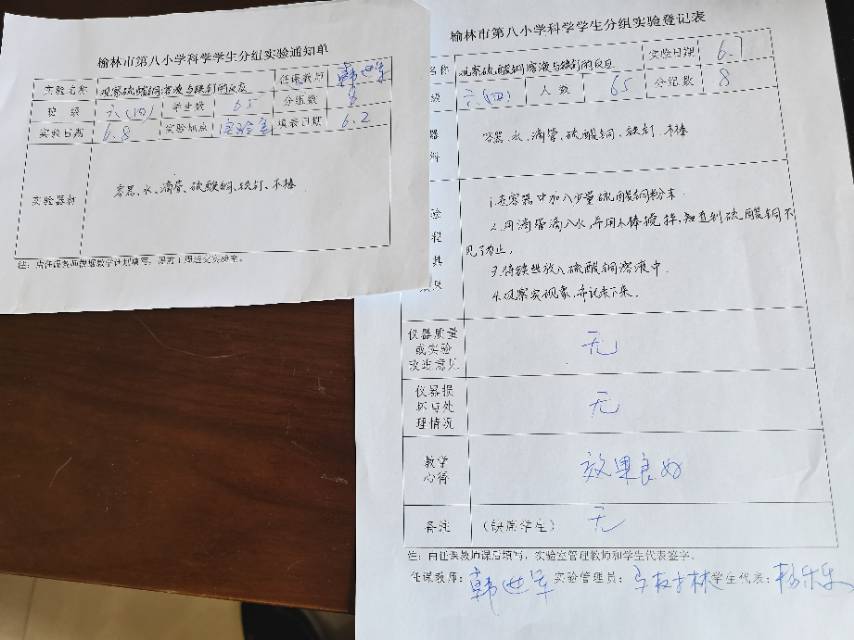 榆林市第八小学科学学生分组实验通知单
实验名称 观察硫酸铜溶液与铁钉的反应 任课教师 韩世军
班 级 六(四) 学生数 65 分组数 8
实验日期 6.8 实验地点 实验室 填表日期 6.2
实验器材 容器、水、滴管、硫酸铜、铁钉、木棒
注:由任课教师根据教学计划填写,课前1周送交实验室。
榆林市第八小学科学学生分组实验登记表
名称 观察硫酸铜溶液与铁钉的反应 实验日期 6.7
级 六(四) 人 数 65 分组数 8
容器、水、滴管、硫酸铜、铁钉、木棒
1.在容器中加入少量硫酸铜粉末
2.用滴管滴入水,并用木棒搅拌,知直到硫酸铜不
见了为止。
3.将铁丝放入硫酸铜溶液中
4.观察实现象,并记录下来。
仪器质量
或实验
改进意见
无
仪器损
坏与处
理情况
无
教学
心得
效果良好
备注 (缺席学生) 无
注:由任课教师课后填写,实验室管理教师和学生代表签字。
任课教师:韩世军 实验管理员: 学生代表: